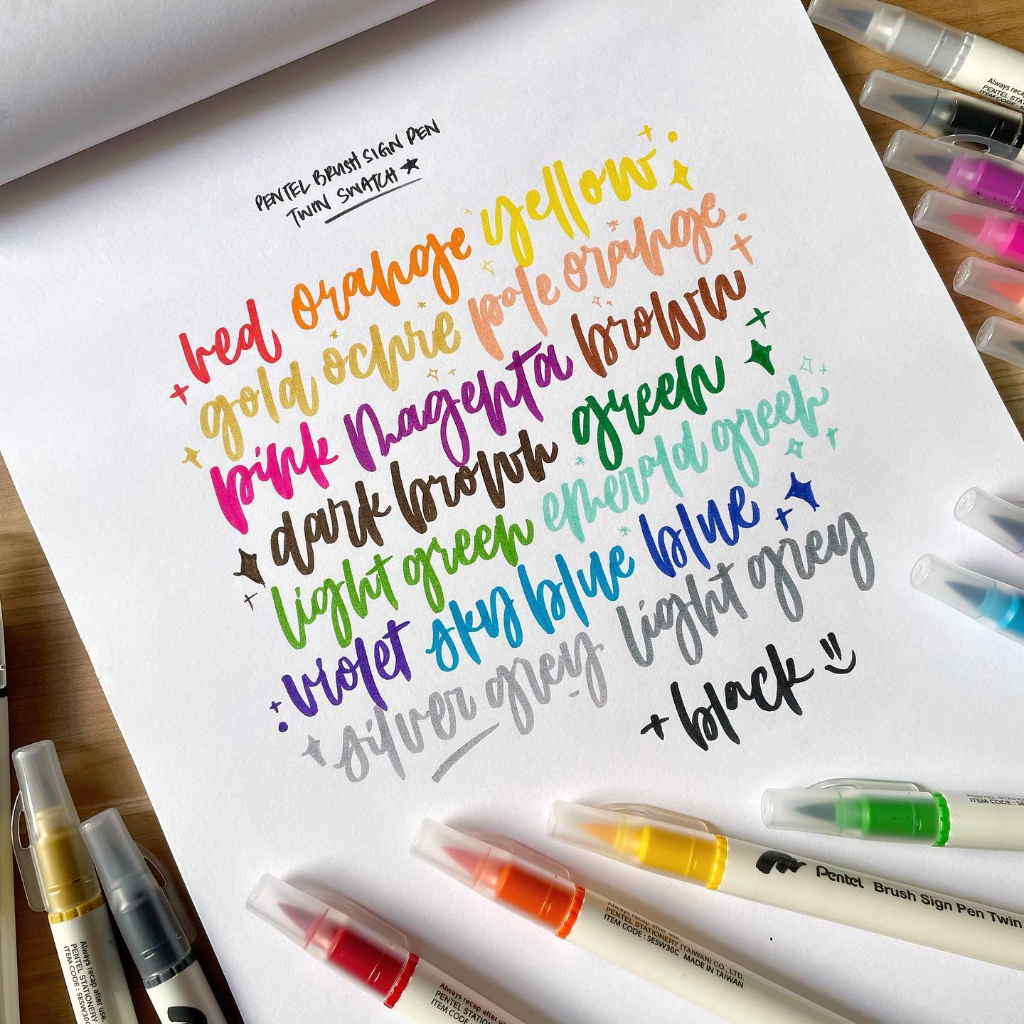 PENTEL BRUSH SIGN PEN
TWIN SWATCH
red orange yellow
gold ochre pale orange
pink magenta brown
dark brown green
light green emerald green
violet sky blue blue
silver grey light grey
+ black
Always recap
PENTEL STA
ITEM CODE :
Pentel Brush Sign Pen Twin
PENTEL STATIONERY (TAIWAN) CO., LTD.
ITEM CODE : SESW30C MADE IN TAIWAN
Always recap after use.
PENTEL STATIONERY
ITEM CODE :
Always recap after use.
PENTEL STATIONERY
ITEM CODE : SESW30C
Always recap after use.
PENTEL STATIONERY
ITEM CODE : SESW30C